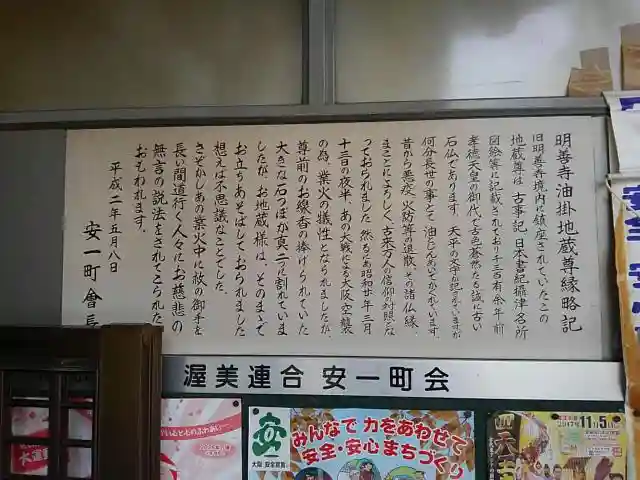 明善寺油掛地蔵尊縁略記
旧明善寺境内に鎮座されていたこの
地蔵尊は、古事記、日本書紀、攝津名所
図絵等に記載されており千三百有余年前
孝徳天皇の御代で古色蒼然たる誠に古い
石仏であります。天平の文字が記されていますが
何分長世の事とて、油じんあいでかくれています。
昔から悪疫、火防等の退散、その諸仏縁
まことによろしく、古来万人の信仰の対照とな
っておられました。然るに昭和廿年三月
十三日の夜半、あの大戦による大阪空襲
の為、業火の犠性となられましたが、
尊前のお線香の捧げられていた
大きな石つぼが真二つに割れていま
したが、お地蔵様は、そのまゝで
お立ちあそばしておられました
想えば不思議なことでした。
さぞかしあの業火中に救の御手を
長い間道行く人々にお慈悲の
無言の説法をされてこられた
おもわれます。
平成二年五月八日
安一町會長
渥美連合 安一町会
みんなで力をあわせて
安全・安心まちづくり
安
大阪府警察
2017年11月5日
天